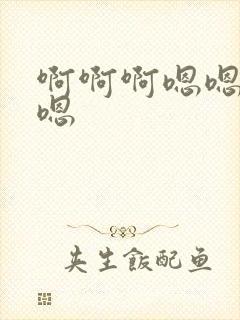 啊啊啊嗯嗯
嗯
夹生飯配鱼